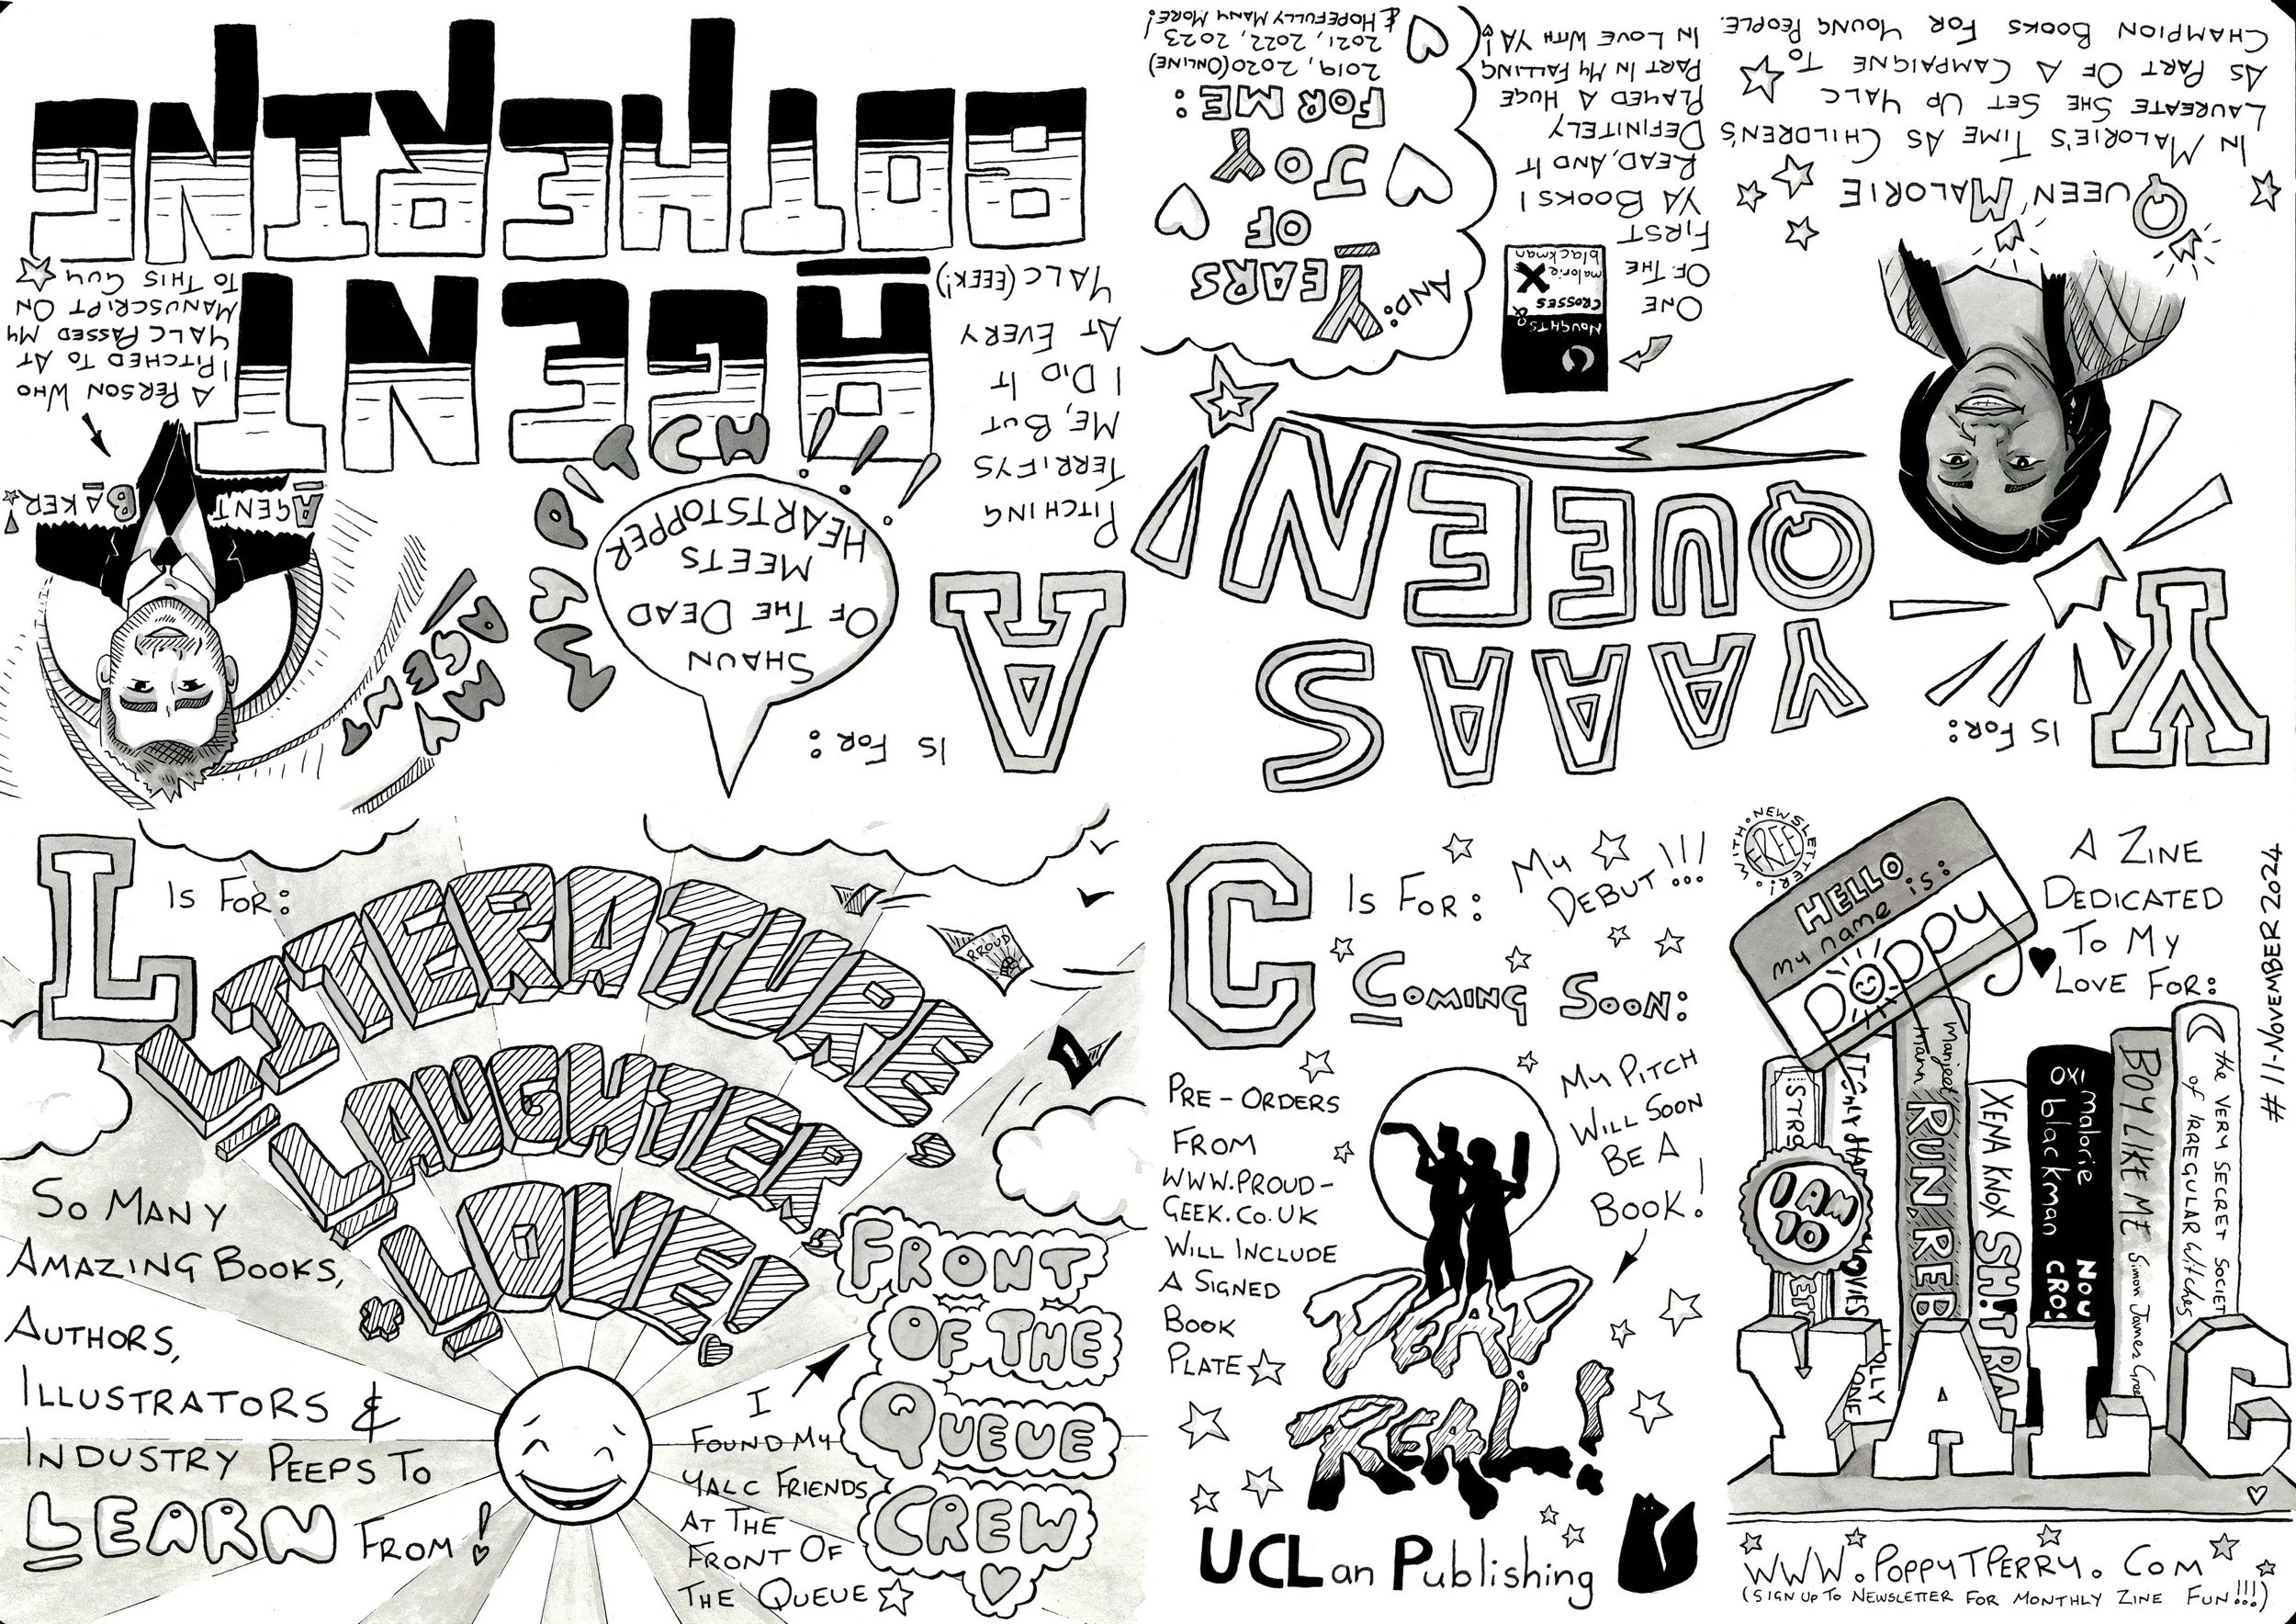 WITH NEWSLETTER!
FREE
HELLO
my name is:
POPPY
A ZINE
DEDICATED
TO MY
LOVE FOR:
#11-NOVEMBER 2024
I AM
10
Manjeet
Mann
RUN, REBEL
XENA KNOX
SH!T BAG
malorie
blackman
BOY LIKE ME
Simon James Green
the VERY SECRET SOCIETY
of IRREGULAR Witches
YALC
WWW.POPPYTPERRY.COM
(SIGN UP TO NEWSLETTER FOR MONTHLY ZINE FUN!!!)
Y
IS FOR:
YAAS
QUEEN!
QUEEN MALORIE
IN MALORIE'S TIME AS CHILDREN'S
LAUREATE SHE SET UP YALC
AS PART OF A CAMPAIGNE TO
CHAMPION BOOKS FOR YOUNG PEOPLE.
NOUGHTS &
CROSSES
malorie
blackman
ONE
OF THE
FIRST
YA BOOKS I
READ, AND IT
DEFINITELY
PLAYED A HUGE
PART IN MY FALLING
IN LOVE WITH YA!
AND:
YEARS
OF
JOY
FOR ME:
2019, 2020 (ONLINE)
2021, 2022, 2023
& HOPEFULLY MANY MORE!
A
IS FOR:
SHAUN
OF THE DEAD
MEETS
HEARTSTOPPER
MY PITCH!!!
HEY
AGENT
AGENT
BOTHERING
PITCHING
TERRIFYS
ME, BUT
I DID IT
AT EVERY
YALC (EEEK!)
AGENT
BAKER!
A PERSON WHO
I PITCHED TO AT
YALC PASSED MY
MANUSCRIPT ON
TO THIS GUY
L
IS FOR:
LITERATURE,
LAUGHTER,
LOVE!
PROUD
SO MANY
AMAZING BOOKS,
AUTHORS,
ILLUSTRATORS &
INDUSTRY PEEPS TO
LEARN FROM!
I
FOUND MY
YALC FRIENDS
AT THE
FRONT OF
THE QUEUE
FRONT
OF THE
QUEUE
CREW
C
IS FOR:
MY
DEBUT!!!
COMING SOON:
PRE-ORDERS
FROM
WWW.PROUD-
GEEK.CO.UK
WILL INCLUDE
A SIGNED
BOOK
PLATE
MY PITCH
WILL SOON
BE A
BOOK!
DEAD
REAL!
UCLan Publishing